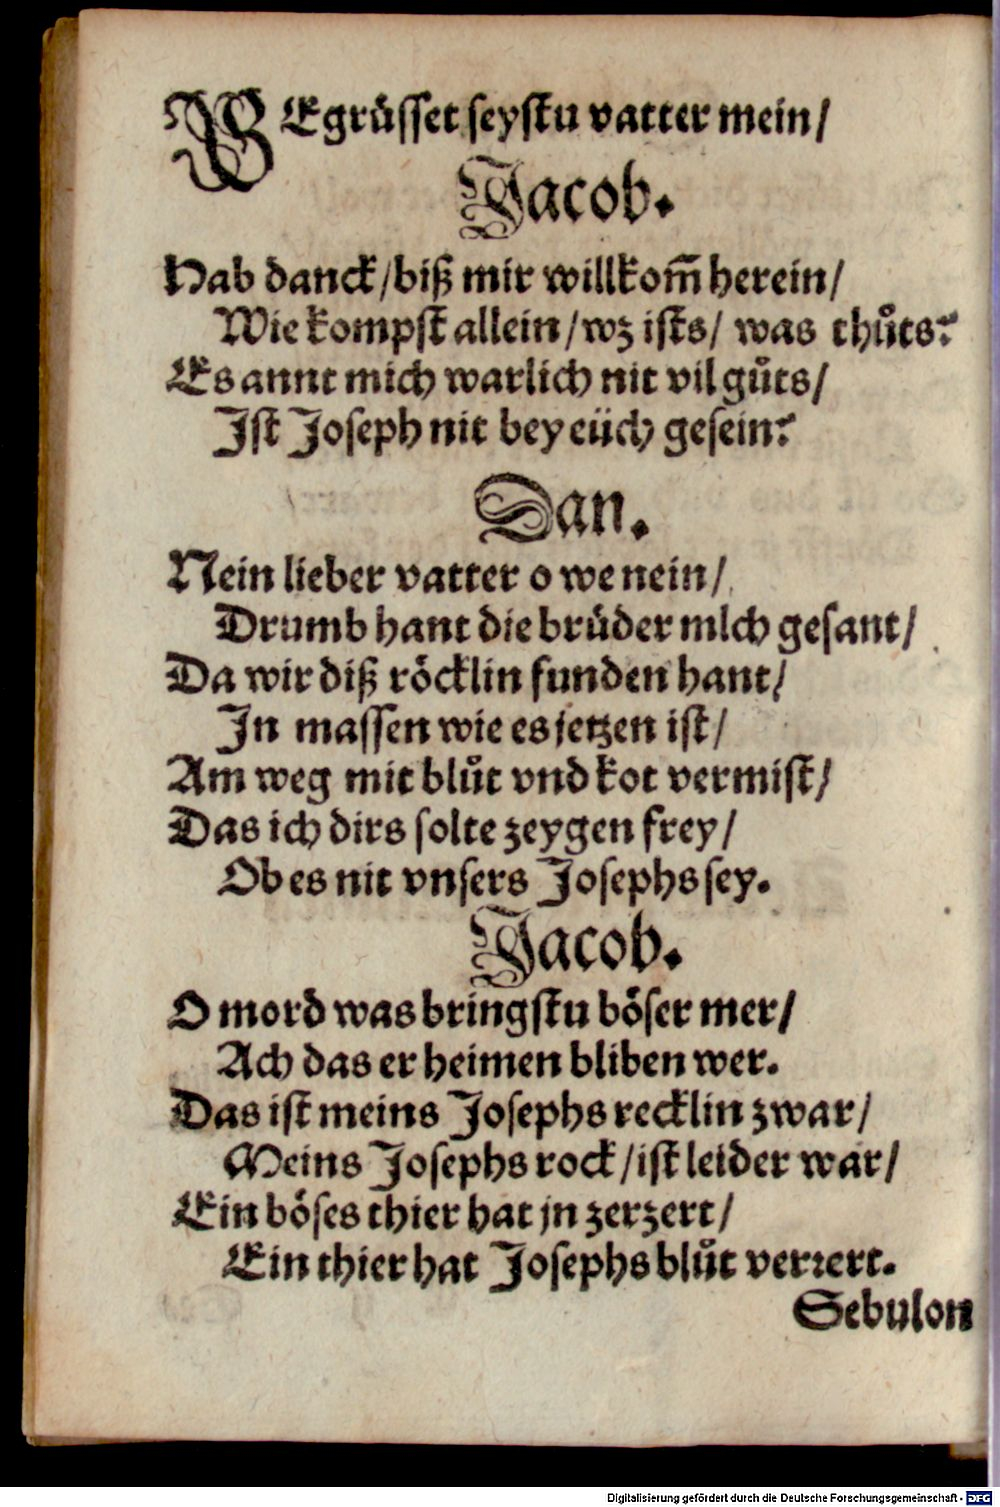 BEgrüsset seystu vatter mein/
Jacob.
Hab danck/biß mir willkom̃ herein/
Wie kompst allein/wz ists/ was thůts?
Es annt mich warlich nit vil gůts/
Ist Joseph nit bey eüch gesein?
Dan.
Nein lieber vatter o we nein/
Drumb hant die brüder mlch gesant/
Da wir diß röcklin funden hant/
In massen wie es jetzen ist/
Am weg mit blůt vnd kot vermist/
Das ich dirs solte zeygen frey/
Ob es nit vnsers Josephs sey.
Jacob.
O mord was bringstu böser mer/
Ach das er heimen bliben wer.
Das ist meins Josephs recklin zwar/
Meins Josephs rock/ist leider war/
Ein böses thier hat jn zerzert/
Ein thier hat Josephs blůt verrert.
Sebulon
Digitalisierung gefördert durch die Deutsche Forschungsgemeinschaft - DFG